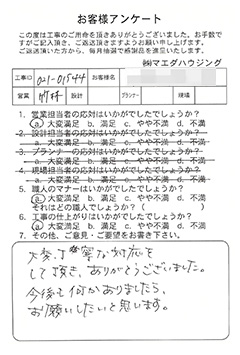 お客様アンケート
この度は工事のご用命を頂きありがとうございました。お手数で
すがご記入頂き、ご返送頂きますようお願い申し上げます。
ご返送頂いた方から、毎月抽選で感謝品を進呈いたします。
㈱マエダハウジング
工事ID 021-015744 お客様名
営業 竹林 設計 プランナー 現場
1. 営業担当者の応対はいかがでしたでしょうか?
a. 大変満足 b. 満足 c. やや不満 d. 不満
2. 設計担当者の応対はいかがでしたでしょうか?
a. 大変満足 b. 満足 c. やや不満 d. 不満
3. プランナーの応対はいかがでしたでしょうか?
a. 大変満足 b. 満足 c. やや不満 d. 不満
4. 現場担当者の応対はいかがでしたでしょうか?
a. 大変満足 b. 満足 c. やや不満 d. 不満
5. 職人のマナーはいかがでしたでしょうか?
a. 大変満足 b. 満足 c. やや不満 d. 不満
それはどの職人でしょうか?( )
6. 工事の仕上がりはいかがでしたでしょうか?
a. 大変満足 b. 満足 c. やや不満 d. 不満
7. その他、ご意見・ご要望をお書き下さい。
大変丁寧な対応を
して頂き、ありがとうございました。
今後も何かありましたら、
お願いしたいと思います。